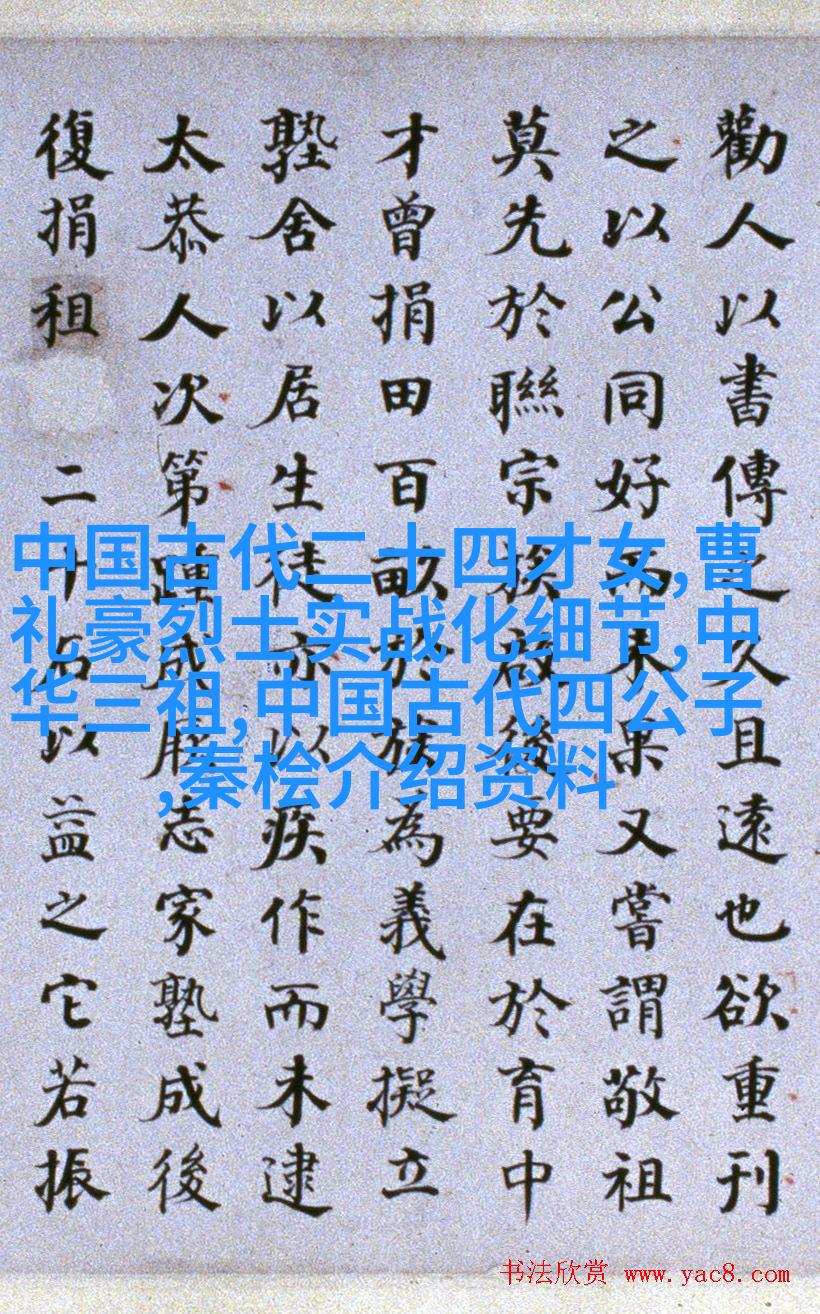 勸人以書傳之久且遠也欲重刊
之以公同好而未果又嘗謂敬祖
莫先於聯宗族啟後要在於育中
才曾捐田百畝於族為義學擬立
塾舍以居生徒亦以疾作而未逮
太恭人次第踵成厥志家塾成後
復捐租二十石以益之它若振
中国古代二十四才女,曹
礼豪烈士实战化细节,中
华三祖,中国古代四公子
,秦桧介绍资料
书法欣赏 www.yac8.com